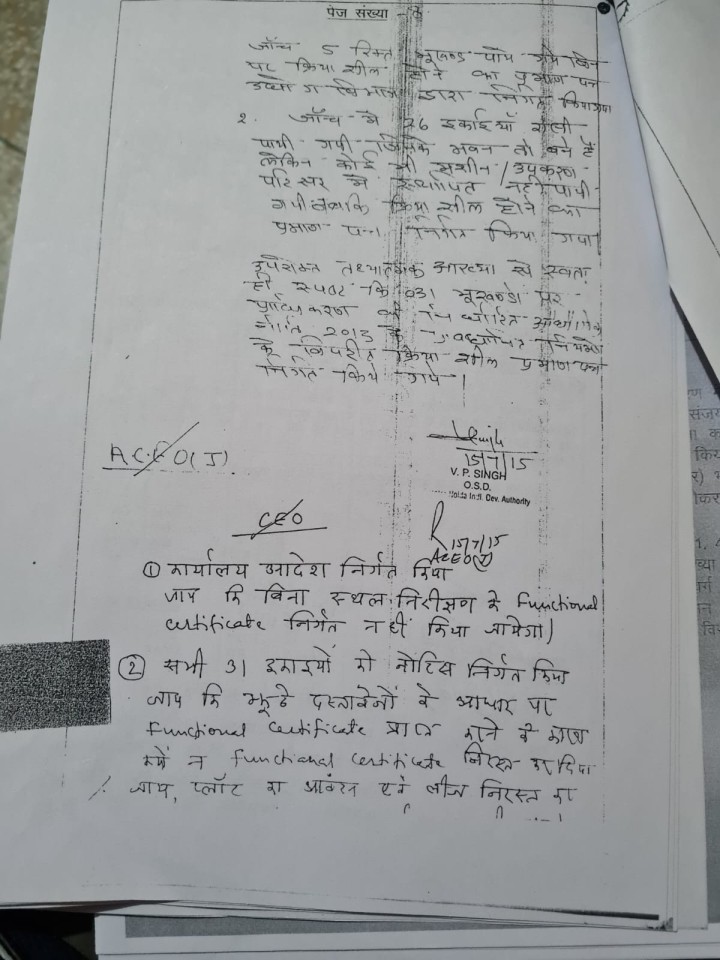 पेज संख्या -
जॉच 5 रिक्त भूखण्ड पाये गये जिन
पर क्रिया शील होने का प्रमाण पत्र
उद्योग विभाग द्वारा निर्गत किया गया
2. जॉच मे 26 इकाइयॉ ऐसी
पायी गयी जिनके भवन तो बने है
लेकिन कोई भी मशीन / उपकरण
परिसर मे स्थापित नही पायी
गयी जबकि क्रिया शील होने का
प्रमाण पत्र निर्गत किया गया
उपरोक्त तथ्यात्मक आख्या से स्वतः
ही स्पष्ट कि 031 भूखण्डो पर
प्राधिकरण की
2013 के नियमो
के विपरीत क्रिया शील प्रमाण पत्र
निर्गत किये गये।
15/7/15
V. P. SINGH
O.S.D.
Noida Indl. Dev. Authority
A.C.E.O(J)
CEO
15/7/15
ACEO(J)
① कार्यालय आदेश निर्गत किया
जाय कि बिना स्थल निरीक्षण के Functional
certificate निर्गत नहीं किया जायेगा)
② सभी 31 इकाइयों को नोटिस निर्गत किया
जाय कि झूठे दस्तावेजों के आधार पर
Functional Certificate प्राप्त करने के कारण
क्यों न functional certificate निरस्त कर दिया
जाय, प्लॉट का आवंटन एवं लीज निरस्त कर